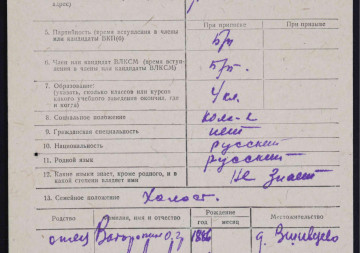 адрес)
При приписке При призыве
5. Партийность (время вступления в члены
или кандидаты ВКП(б) Б/п
6. Член или кандидат ВЛКСМ (время вступ-
ления в члены или кандидаты ВЛКСМ) Б/п.
7. Образование:
(указать, сколько классов или курсов
какого учебного заведения окончил, где
и когда) 4 кл.
8. Социальное положение кол-к
9. Гражданская специальность нет
10. Национальность русский
11. Родной язык русский
12. Какие языки знает, кроме родного, и в
какой степени владеет ими Не знает
13. Семейное положение Холост.
Родство Фамилия, имя и отчество Рождение Местожительство
год месяц
отец 1886 д.